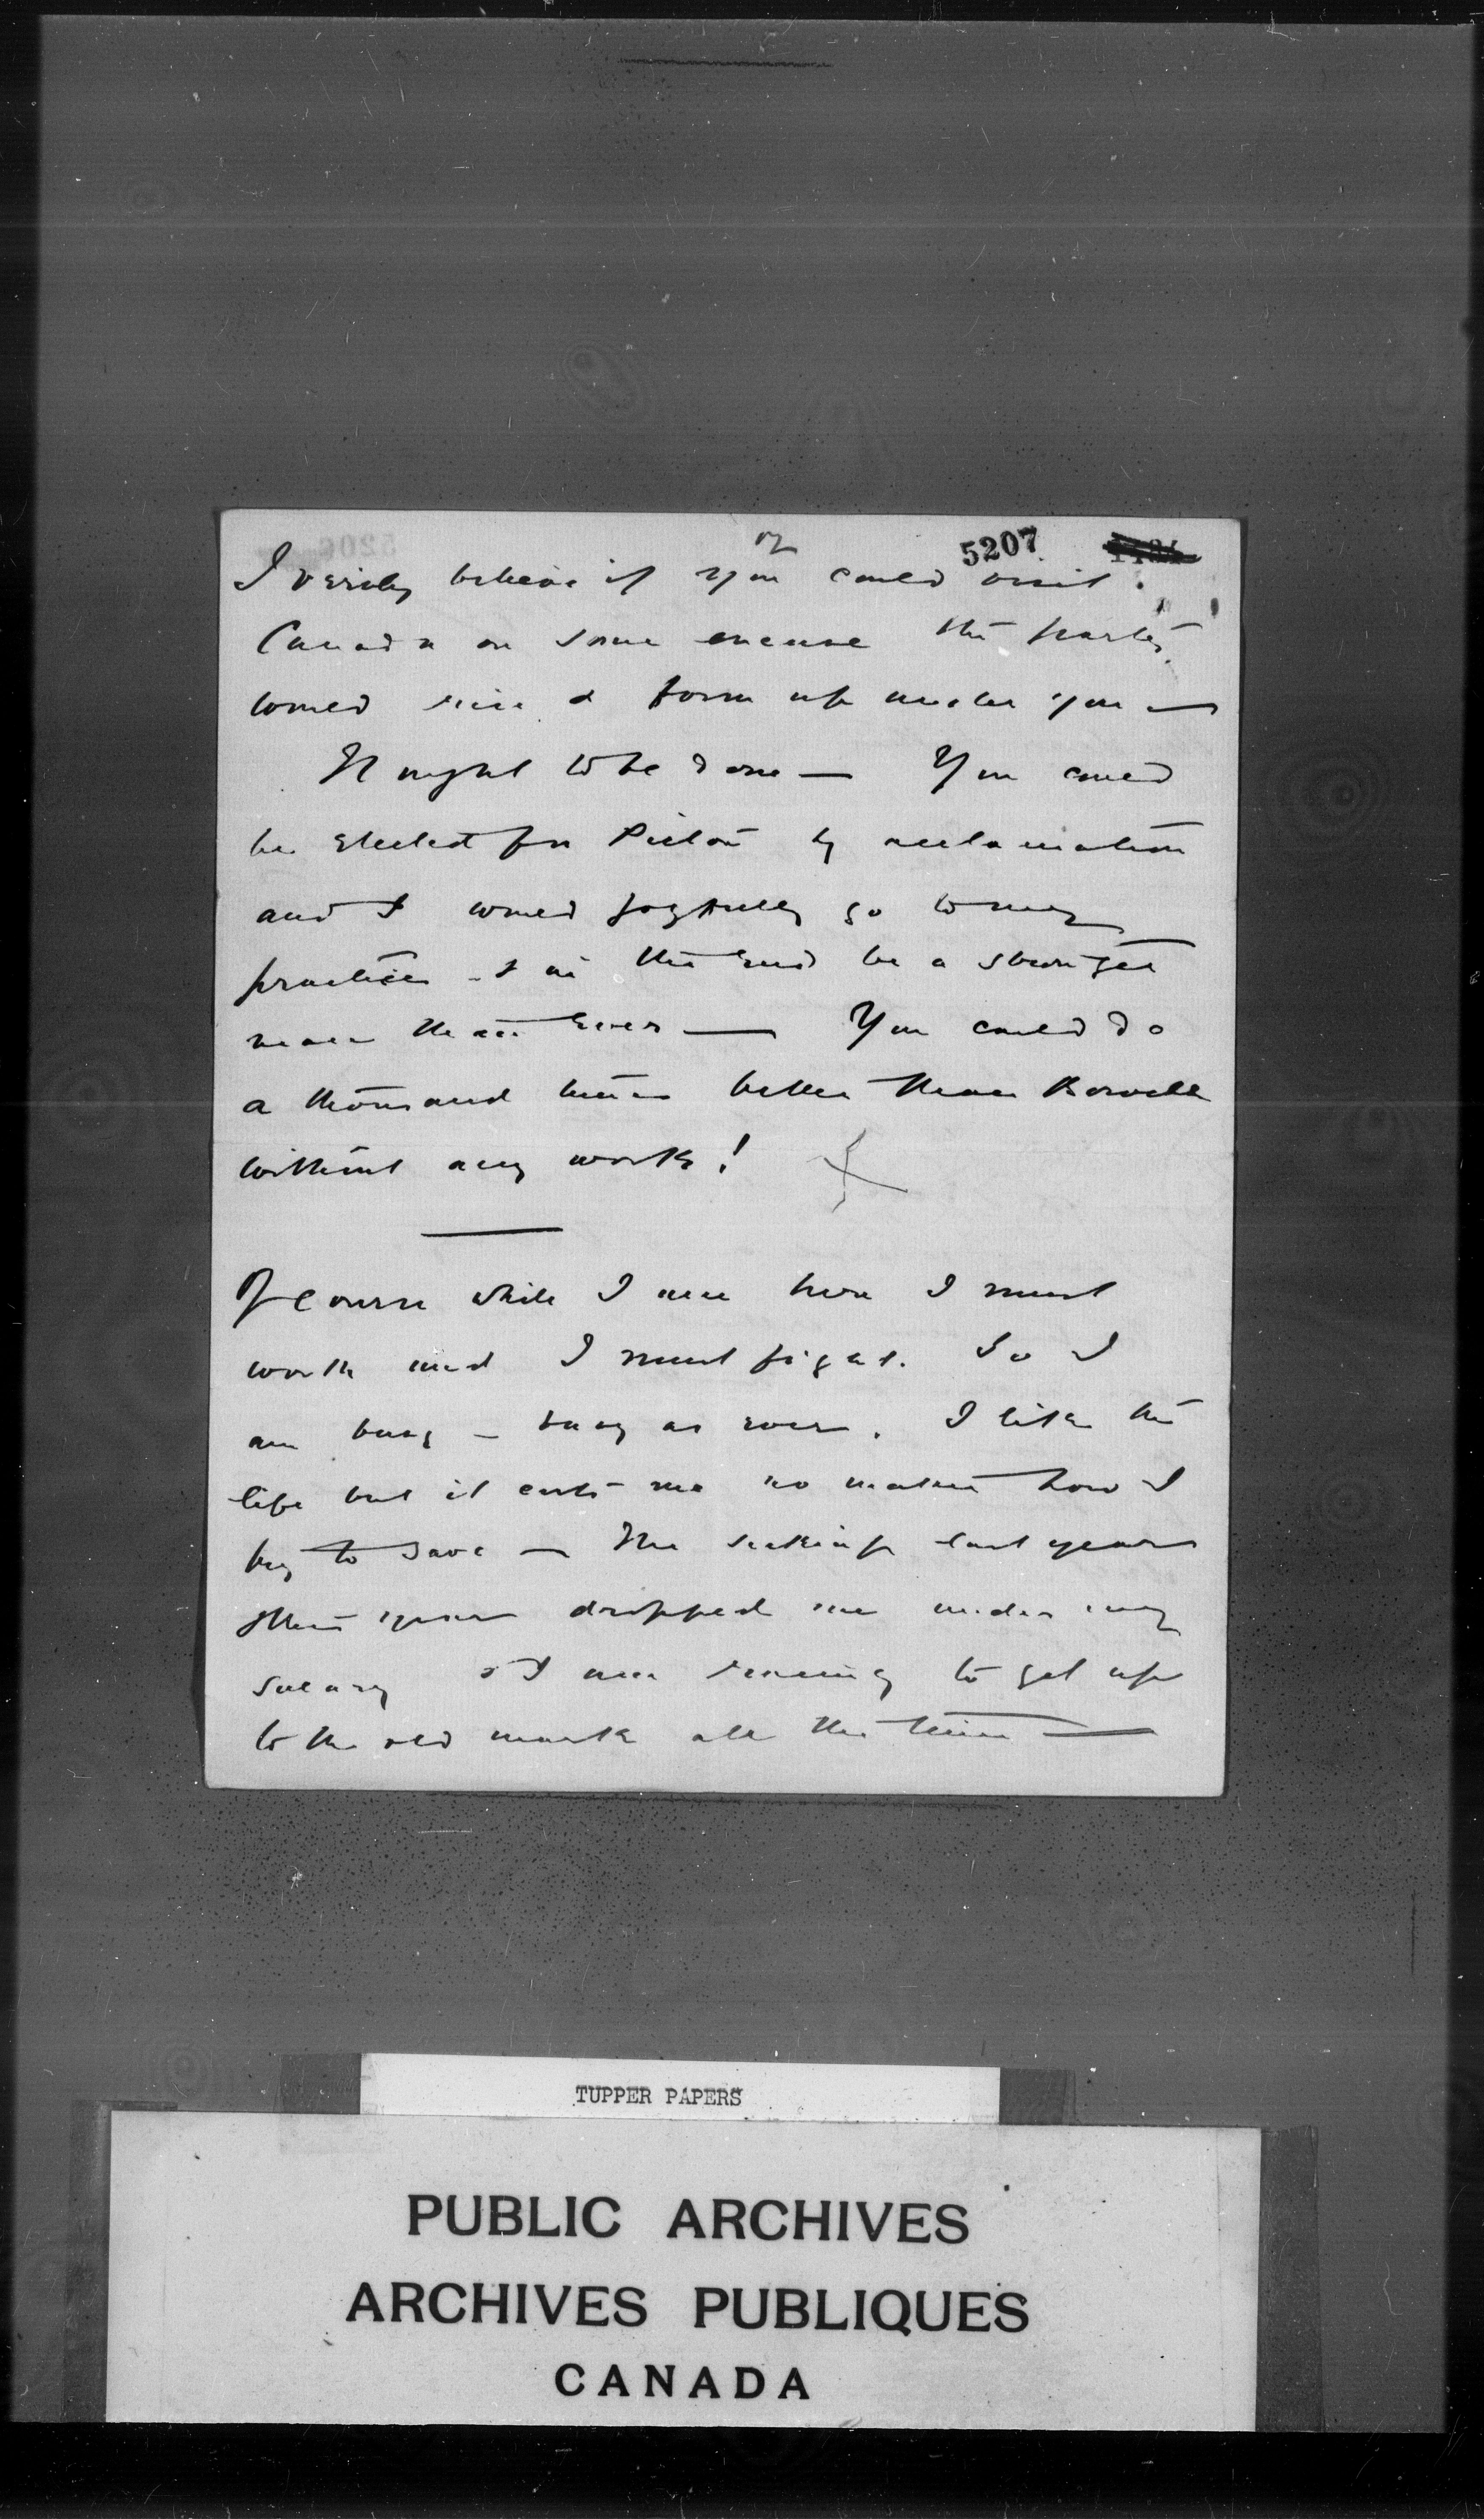 5207
I verily believe if you could visit
Canada on some excuse the party
would rise & form up under you —
It ought to be done — You could
be elected for Pictou by acclamation
and I would joyfully go to my
practice - & in the end be a stronger
man than ever — You could do
a thousand times better than Bowell
without any work!
Of course while I am here I must
work and I must fight. So I
am busy — busy as ever. I like the
life but it costs me no matter how I
try to save — The last year
dropped me under my
salary & I am to get up
to the old mark all the time —
TUPPER PAPERS
PUBLIC ARCHIVES
ARCHIVES PUBLIQUES
CANADA